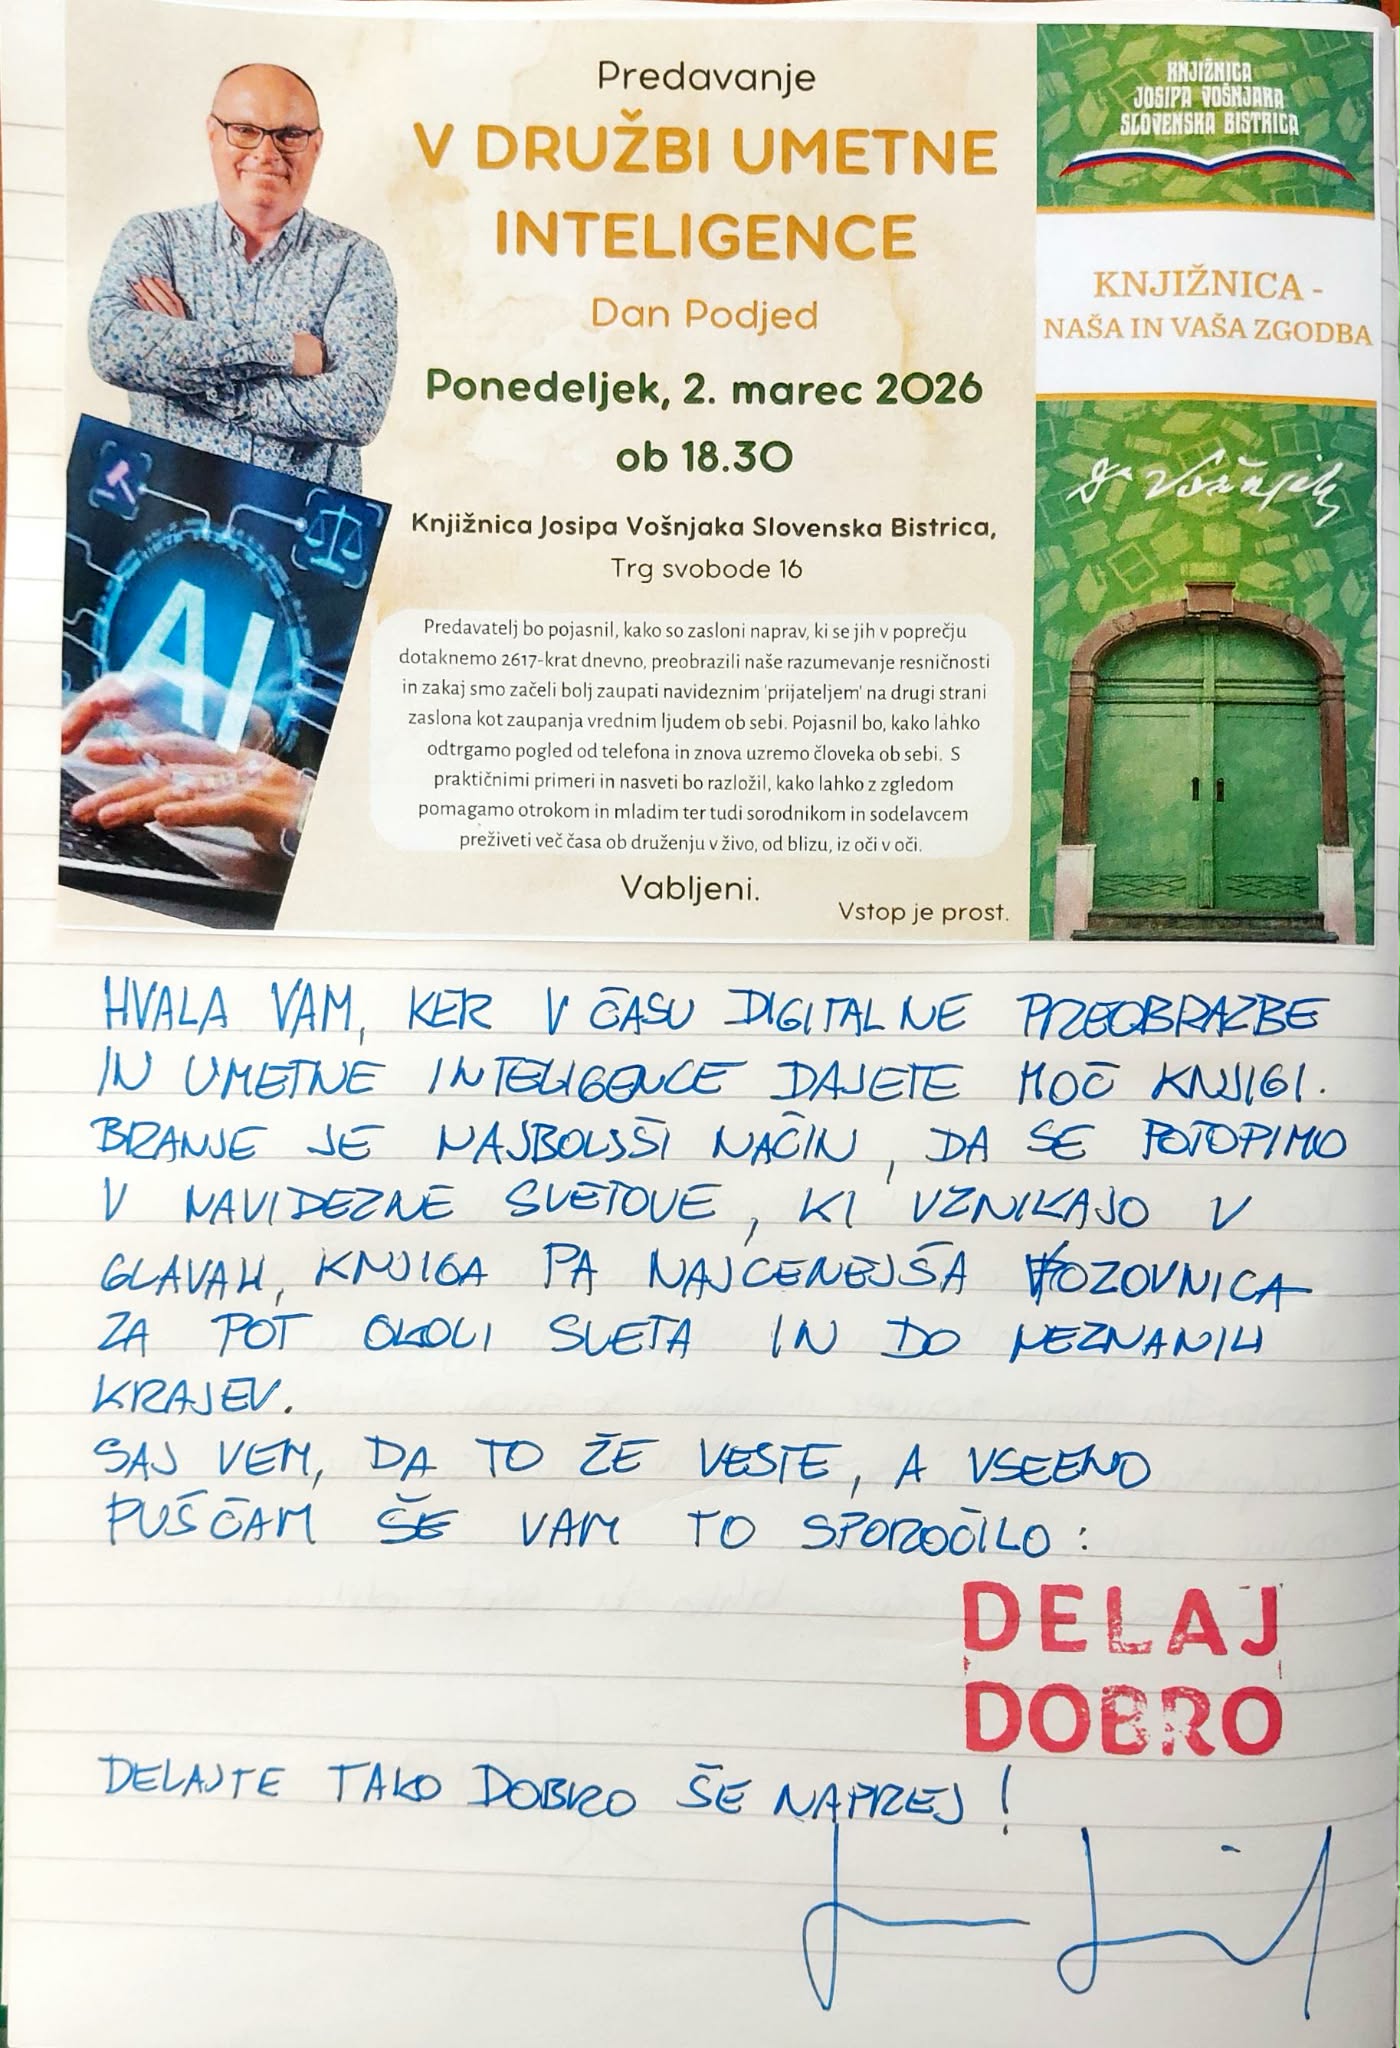 Predavanje
V DRUŽBI UMETNE
INTELIGENCE
Dan Podjed
Ponedeljek, 2. marec 2026
ob 18.30
Knjižnica Josipa Vošnjaka Slovenska Bistrica,
Trg svobode 16
Predavatelj bo pojasnil, kako so zasloni naprav, ki se jih v poprečju
dotaknemo 2617-krat dnevno, preobrazili naše razumevanje resničnosti
in zakaj smo začeli bolj zaupati navideznim 'prijateljem' na drugi strani
zaslona kot zaupanja vrednim ljudem ob sebi. Pojasnil bo, kako lahko
odtrgamo pogled od telefona in znova uzremo človeka ob sebi. S
praktičnimi primeri in nasveti bo razložil, kako lahko z zgledom
pomagamo otrokom in mladim ter tudi sorodnikom in sodelavcem
preživeti več časa ob druženju v živo, od blizu, iz oči v oči.
Vabljeni.
Vstop je prost.
AI
KNJIŽNICA
JOSIPA VOŠNJAKA
SLOVENSKA BISTRICA
KNJIŽNICA -
NAŠA IN VAŠA ZGODBA
Dr Vošnjak
HVALA VAM, KER V ČASU DIGITALNE PREOBRAZBE
IN UMETNE INTELIGENCE DAJETE MOČ KNJIGI.
BRANJE JE NAJBOLJŠI NAČIN, DA SE POTOPIMO
V NAVIDEZNE SVETOVE, KI VZNIKAJO V
GLAVAH, KNJIGA PA NAJCENEJŠA VOZOVNICA
ZA POT OKOLI SVETA IN DO NEZNANIH
KRAJEV.
SAJ VEM, DA TO ŽE VESTE, A VSEENO
PUŠČAM ŠE VAM TO SPOROČILO:
DELAJ
DOBRO
DELAJTE TAKO DOBRO ŠE NAPREJ!